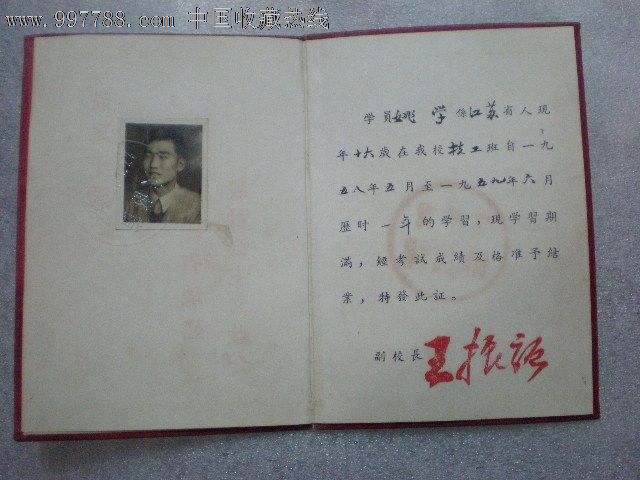 www.997788.com 中国收藏热线
学員姚 学係江苏省人现
年十六歲在我校技工班自一九
五八年五月至一九五九年六月
歷时一年的学習，现学習期
滿，經考試成績及格准予結
業，特發此証。
副校長 王振